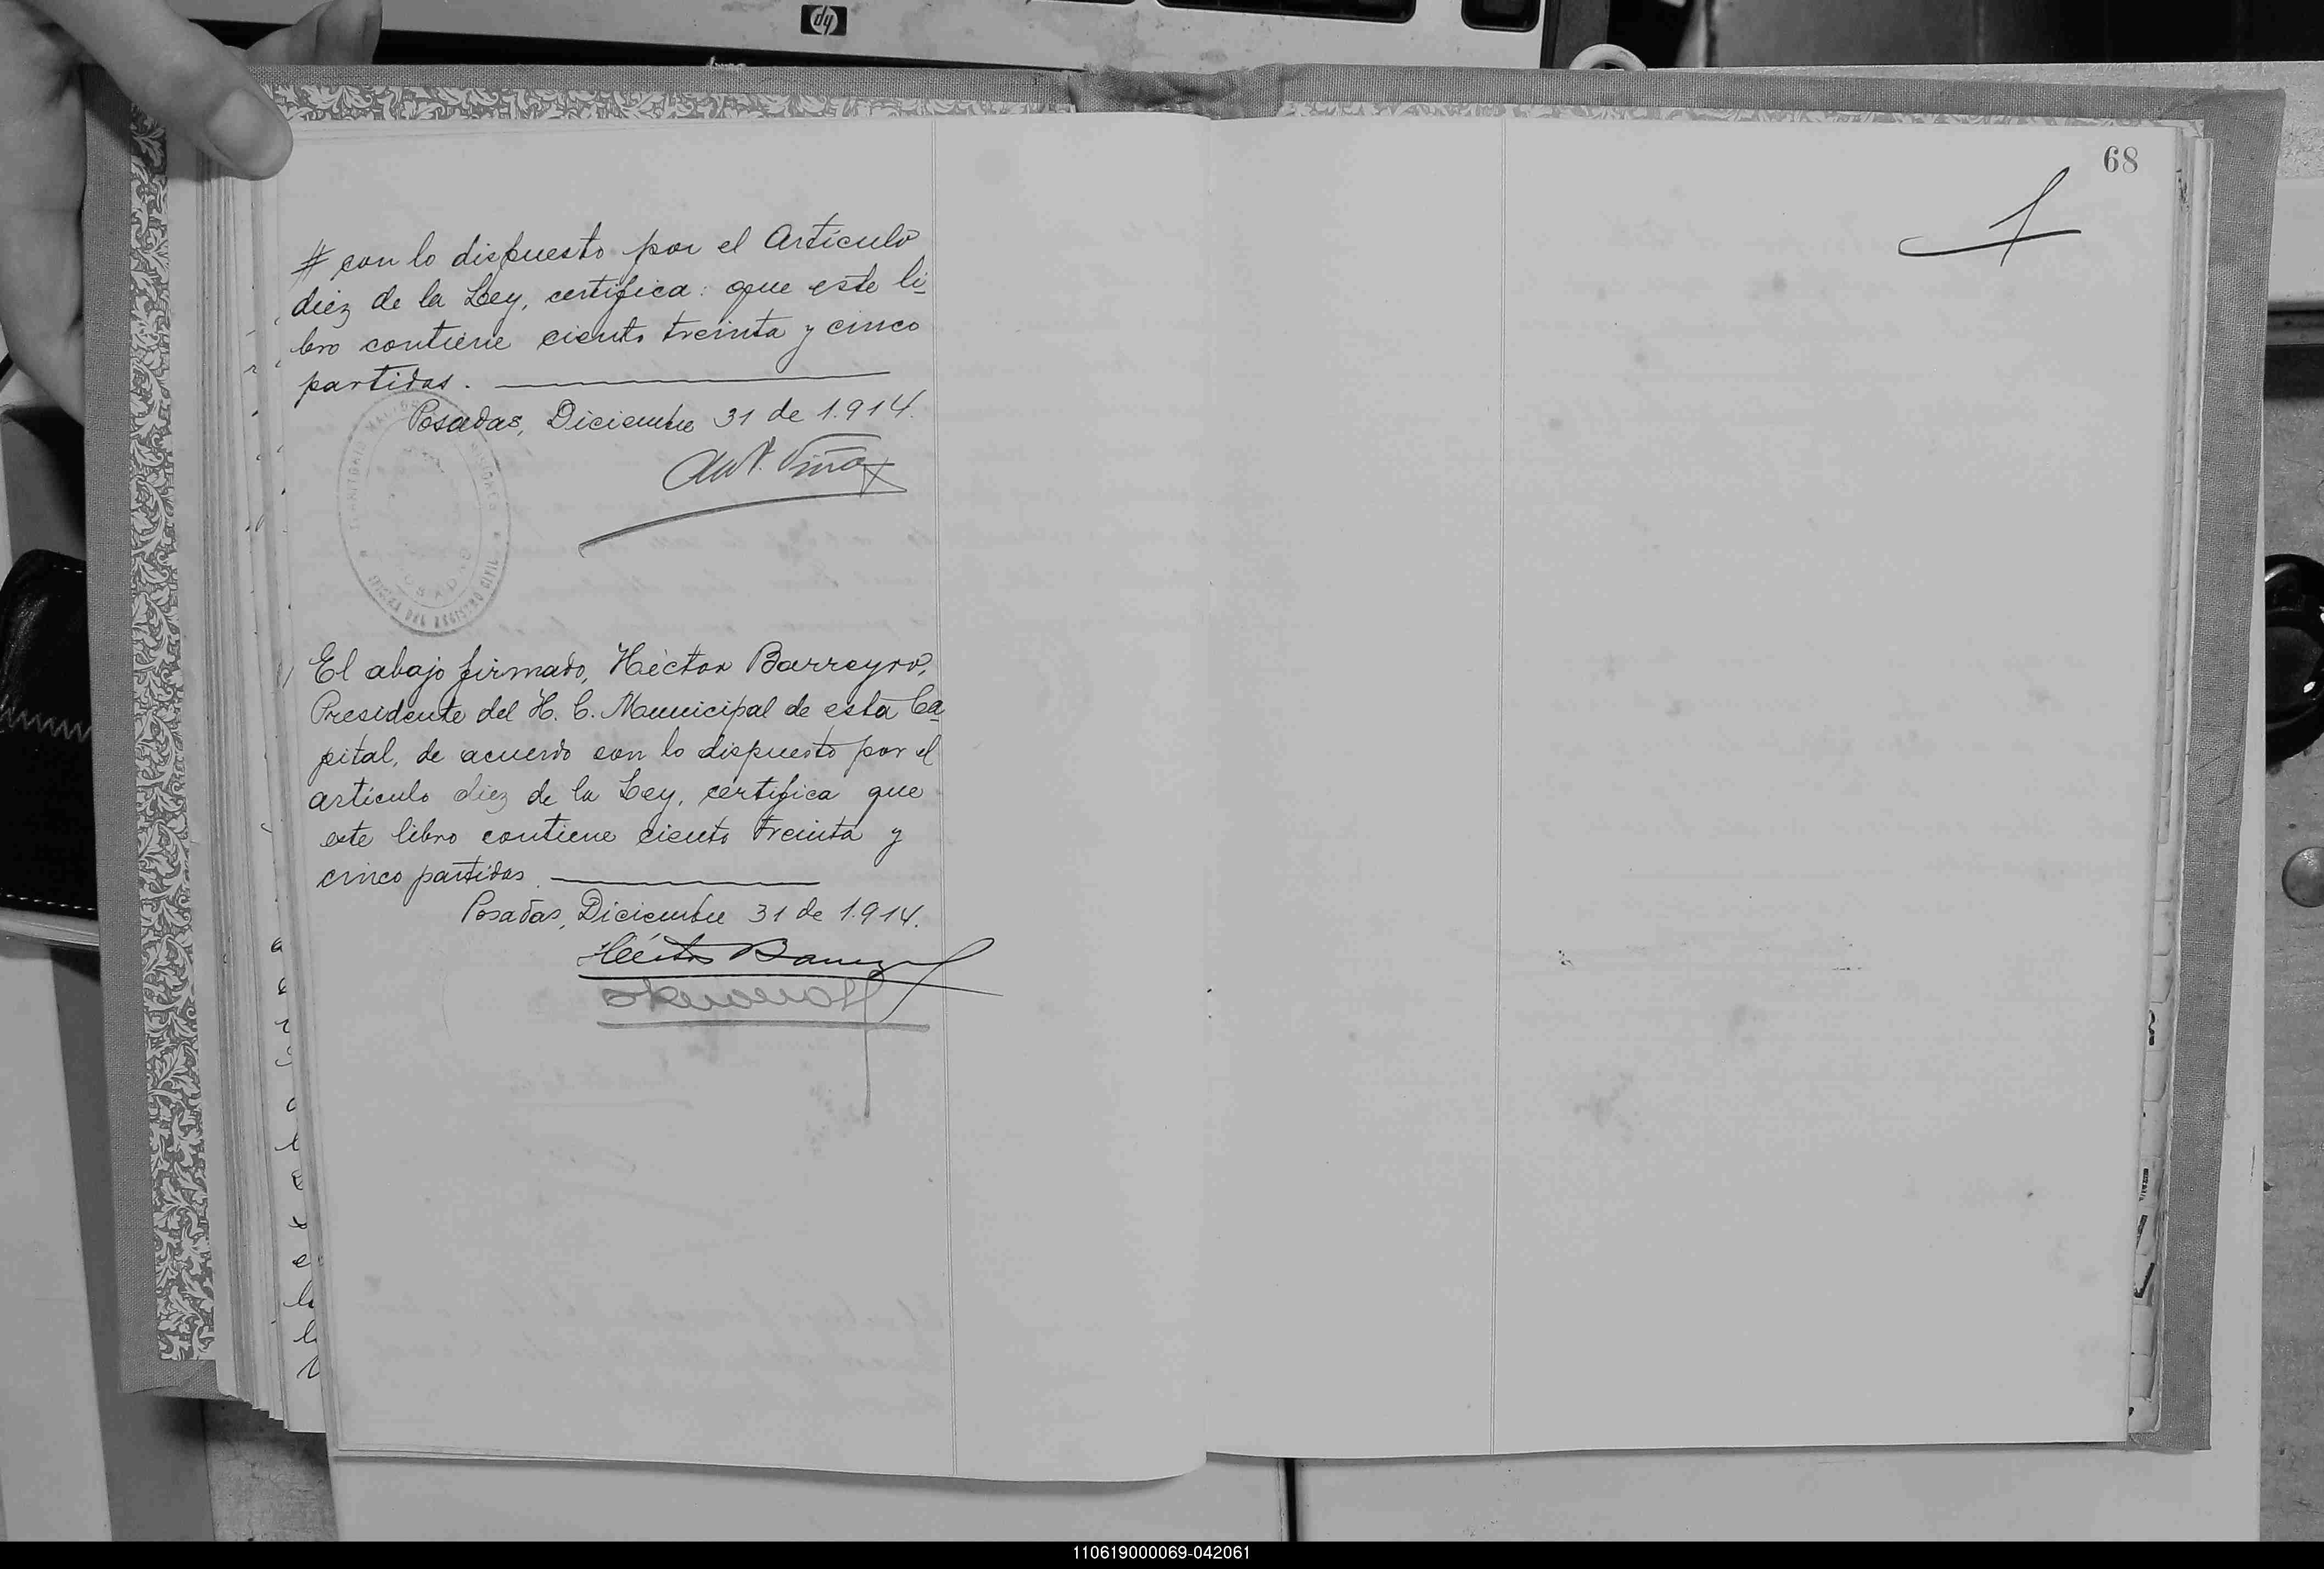 # con lo dispuesto por el Artículo
diez de la Ley, certifica: que este li-
bro contiene ciento treinta y cinco
partidas.
Posadas, Diciembre 31 de 1.914.
POSADAS
El abajo firmado, Héctor Barreyro,
Presidente del H. C. Municipal de esta Ca-
pital, de acuerdo con lo dispuesto por el
artículo diez de la Ley, certifica que
este libro contiene ciento treinta y
cinco partidas.
Posadas, Diciembre 31 de 1.914.
Héctor Barreyro
68
hp
110619000069-042061